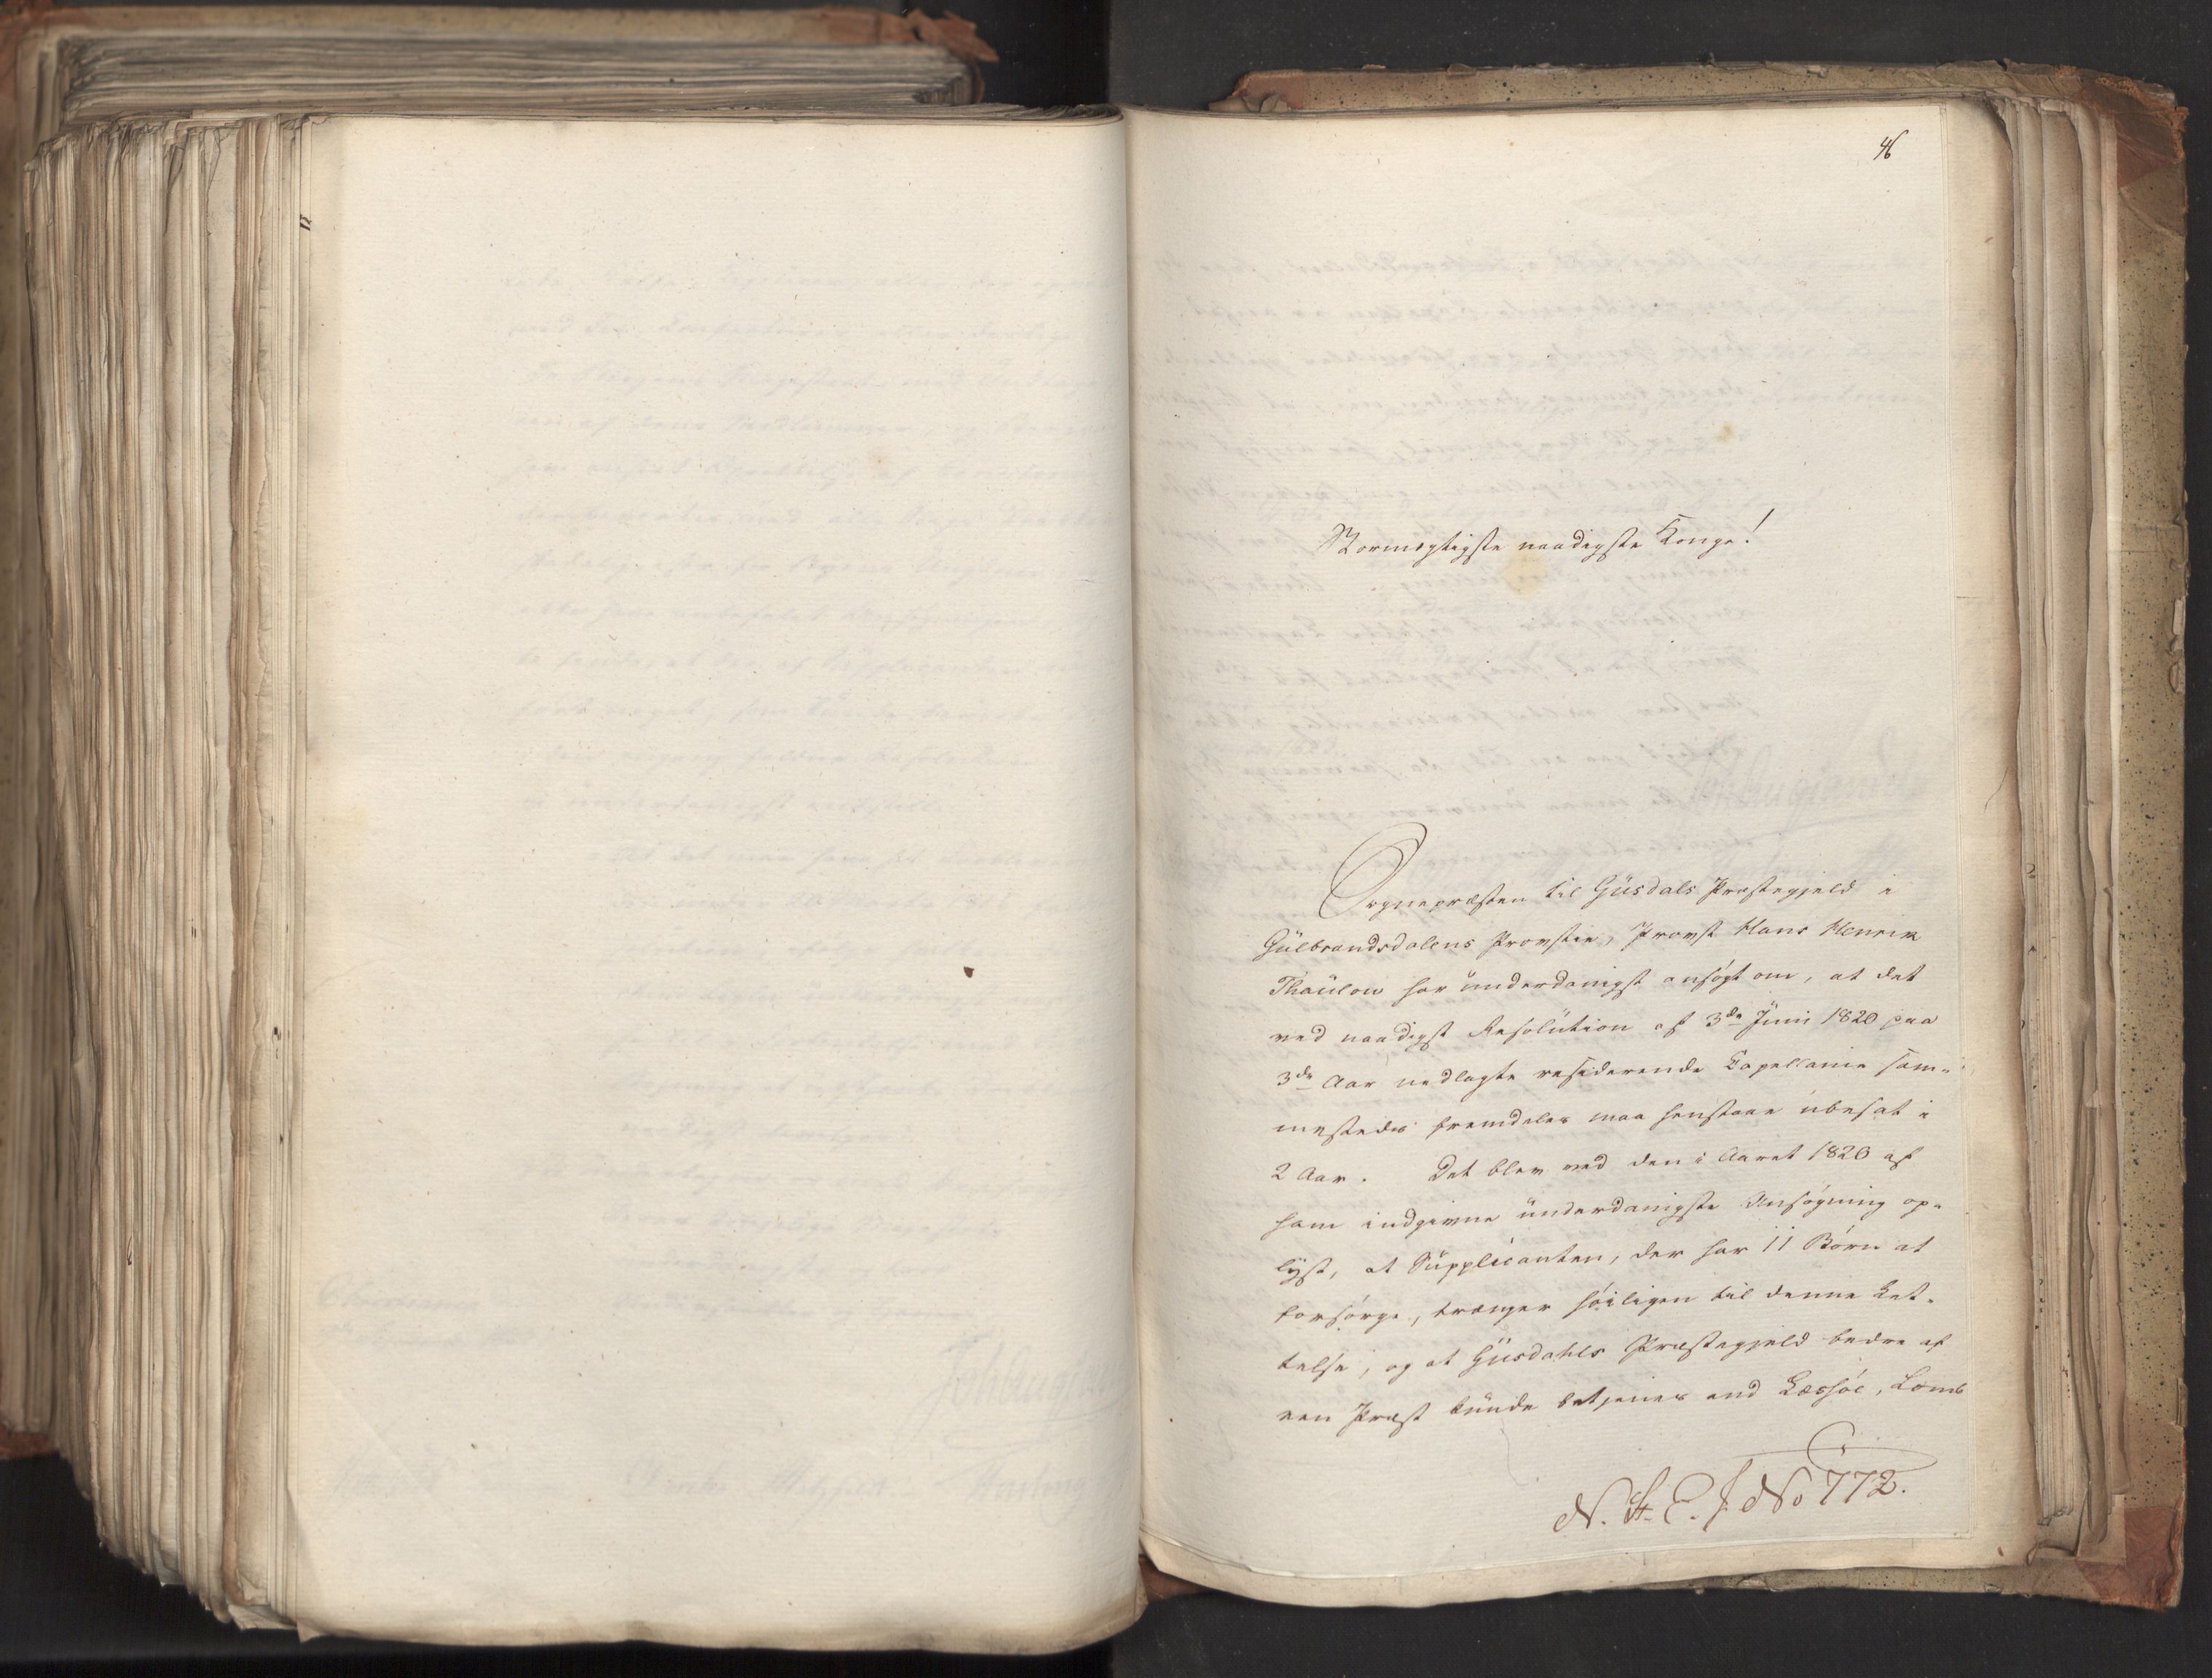 46
Stormægtigste naadigste Konge!
Sognepræsten til Gusdals Præstegjeld i
Gulbrandsdalens Provstie, Provst Hans Henrik
Thaulow har underdanigst ansøgt om, at det
ved naadigst Resolution af 3de Juni 1820 paa
3de Aar nedlagte residerende Capellanie sam-
mesteds fremdeles maa henstaae ubesat i
2 Aar. Det blev ved den i Aaret 1820 af
ham indgivne underdanigste Ansøgning op-
lyst, at Supplicanten, der har 11 Børn at
forsørge, trænger høiligen til denne Let-
telse, og at Gusdahls Præstegjeld bedre af
een Præst kunde betjenes end Lessøe, Lomb
N. St. E. J. No 772.